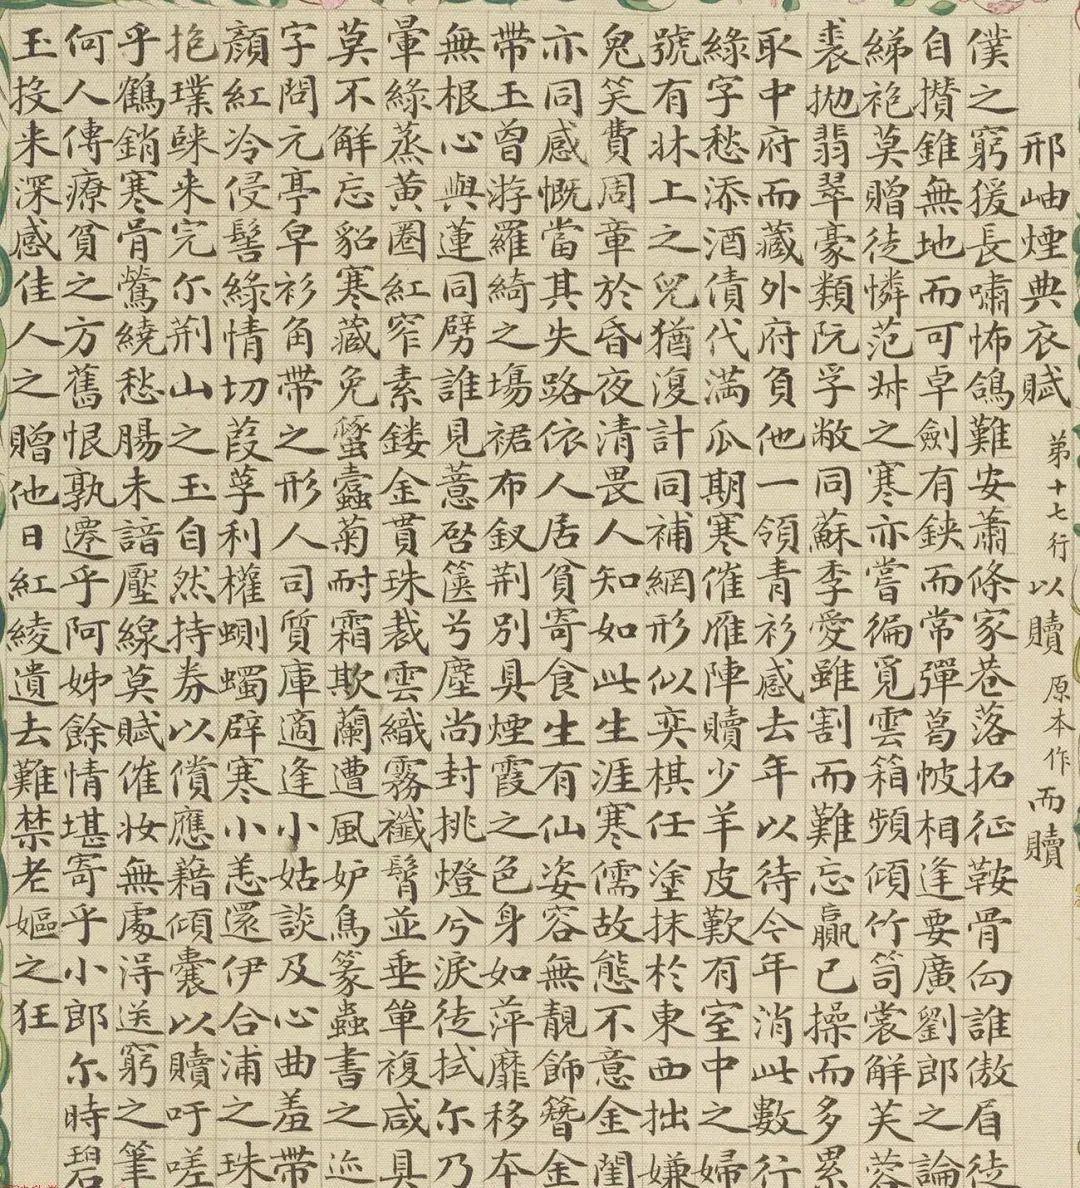 邢岫煙典衣賦 第十七行以贖原本作而贖
僕之窮猨長嘯怖鴿難安蕭條家巷落拓征鞍骨向誰傲眉徒
自攢錐無地而可卓劍有鋏而常彈葛帔相逢要廣劉郎之論
綈袍莫贈徒憐范叔之寒亦嘗徧覓雲箱頻傾竹笥裳解芙蓉
裘拋翡翠豪類阮孚敝同蘇季愛雖割而難忘贏已操而多累
取中府而藏外府負他一領青衫感去年以待今年消此數行
綠字愁添酒債代滿瓜期寒催雁陣贖少羊皮歎有室中之婦
號有牀上之兒猶復計同補網形似奕棋任塗抹於東西拙嫌
鬼笑費周章於昏夜清畏人知如此生涯寒儒故態不意金閨
亦同感慨當其失路依人居貧寄食生有仙姿容無靚飾簪金
帶玉曾游羅綺之塲裙布釵荆別具煙霞之色身如萍靡移本
無根心與蓮同劈誰見薏啓篋兮塵尚封挑燈兮淚徒拭尔乃
暈綠蒸黃圈紅窄素鏤金貫珠裁雲織霧襳髾並垂單複咸具
莫不解忘貂寒藏免蠹菊耐霜欺蘭遭風妒鳥篆蟲書之迹
字問元亭皁衫角帶之形人司質庫適逢小姑談及心曲羞帶
顏紅冷侵髻綠情切葭莩利權蠲辟寒小恙還伊合浦之珠
抱璞来完尔荆山之玉自然持券以償應藉傾囊以贖吁嗟
乎鶴銷寒骨鶯繞愁腸未諳壓線莫賦催妝無處淂送窮之筆
何人傳療貧之方舊恨孰遷乎阿姊餘情堪寄乎小郎尔時碧
玉投来深感佳人之贈他日紅綾遺去難禁老嫗之狂